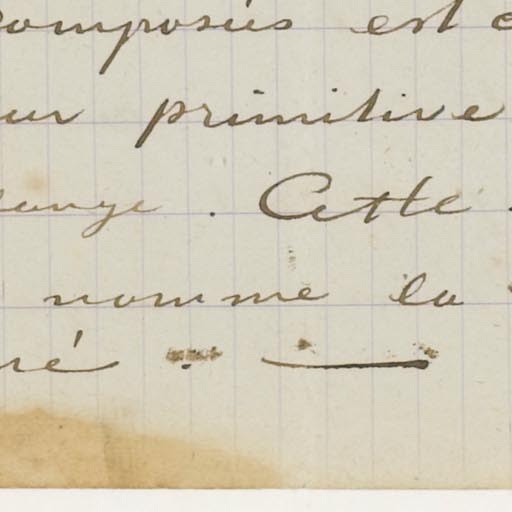 composés est
ur primitive
lange. Cette
nomme la
ré. —